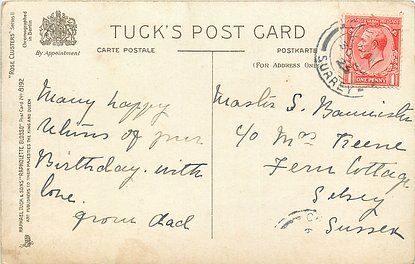 TUCK'S POST CARD
CARTE POSTALE
POSTKARTE
(FOR ADDRESS ONLY)
By Appointment
"ROSE CLUSTERS" SERIES II
Chromographed
in Berlin
RAPHAEL TUCK & SONS' "RAPHOLETTE GLOSSO" Post Card No. 8192
ART PUBLISHERS TO THEIR MAJESTIES THE KING AND QUEEN
Many happy
returns of your
Birthday. with
love.
from dad
Master S. Bannister
c/o Mrs Keene
Fern Cottage
Selsey
Sussex
SURREY
ONE PENNY
1
1